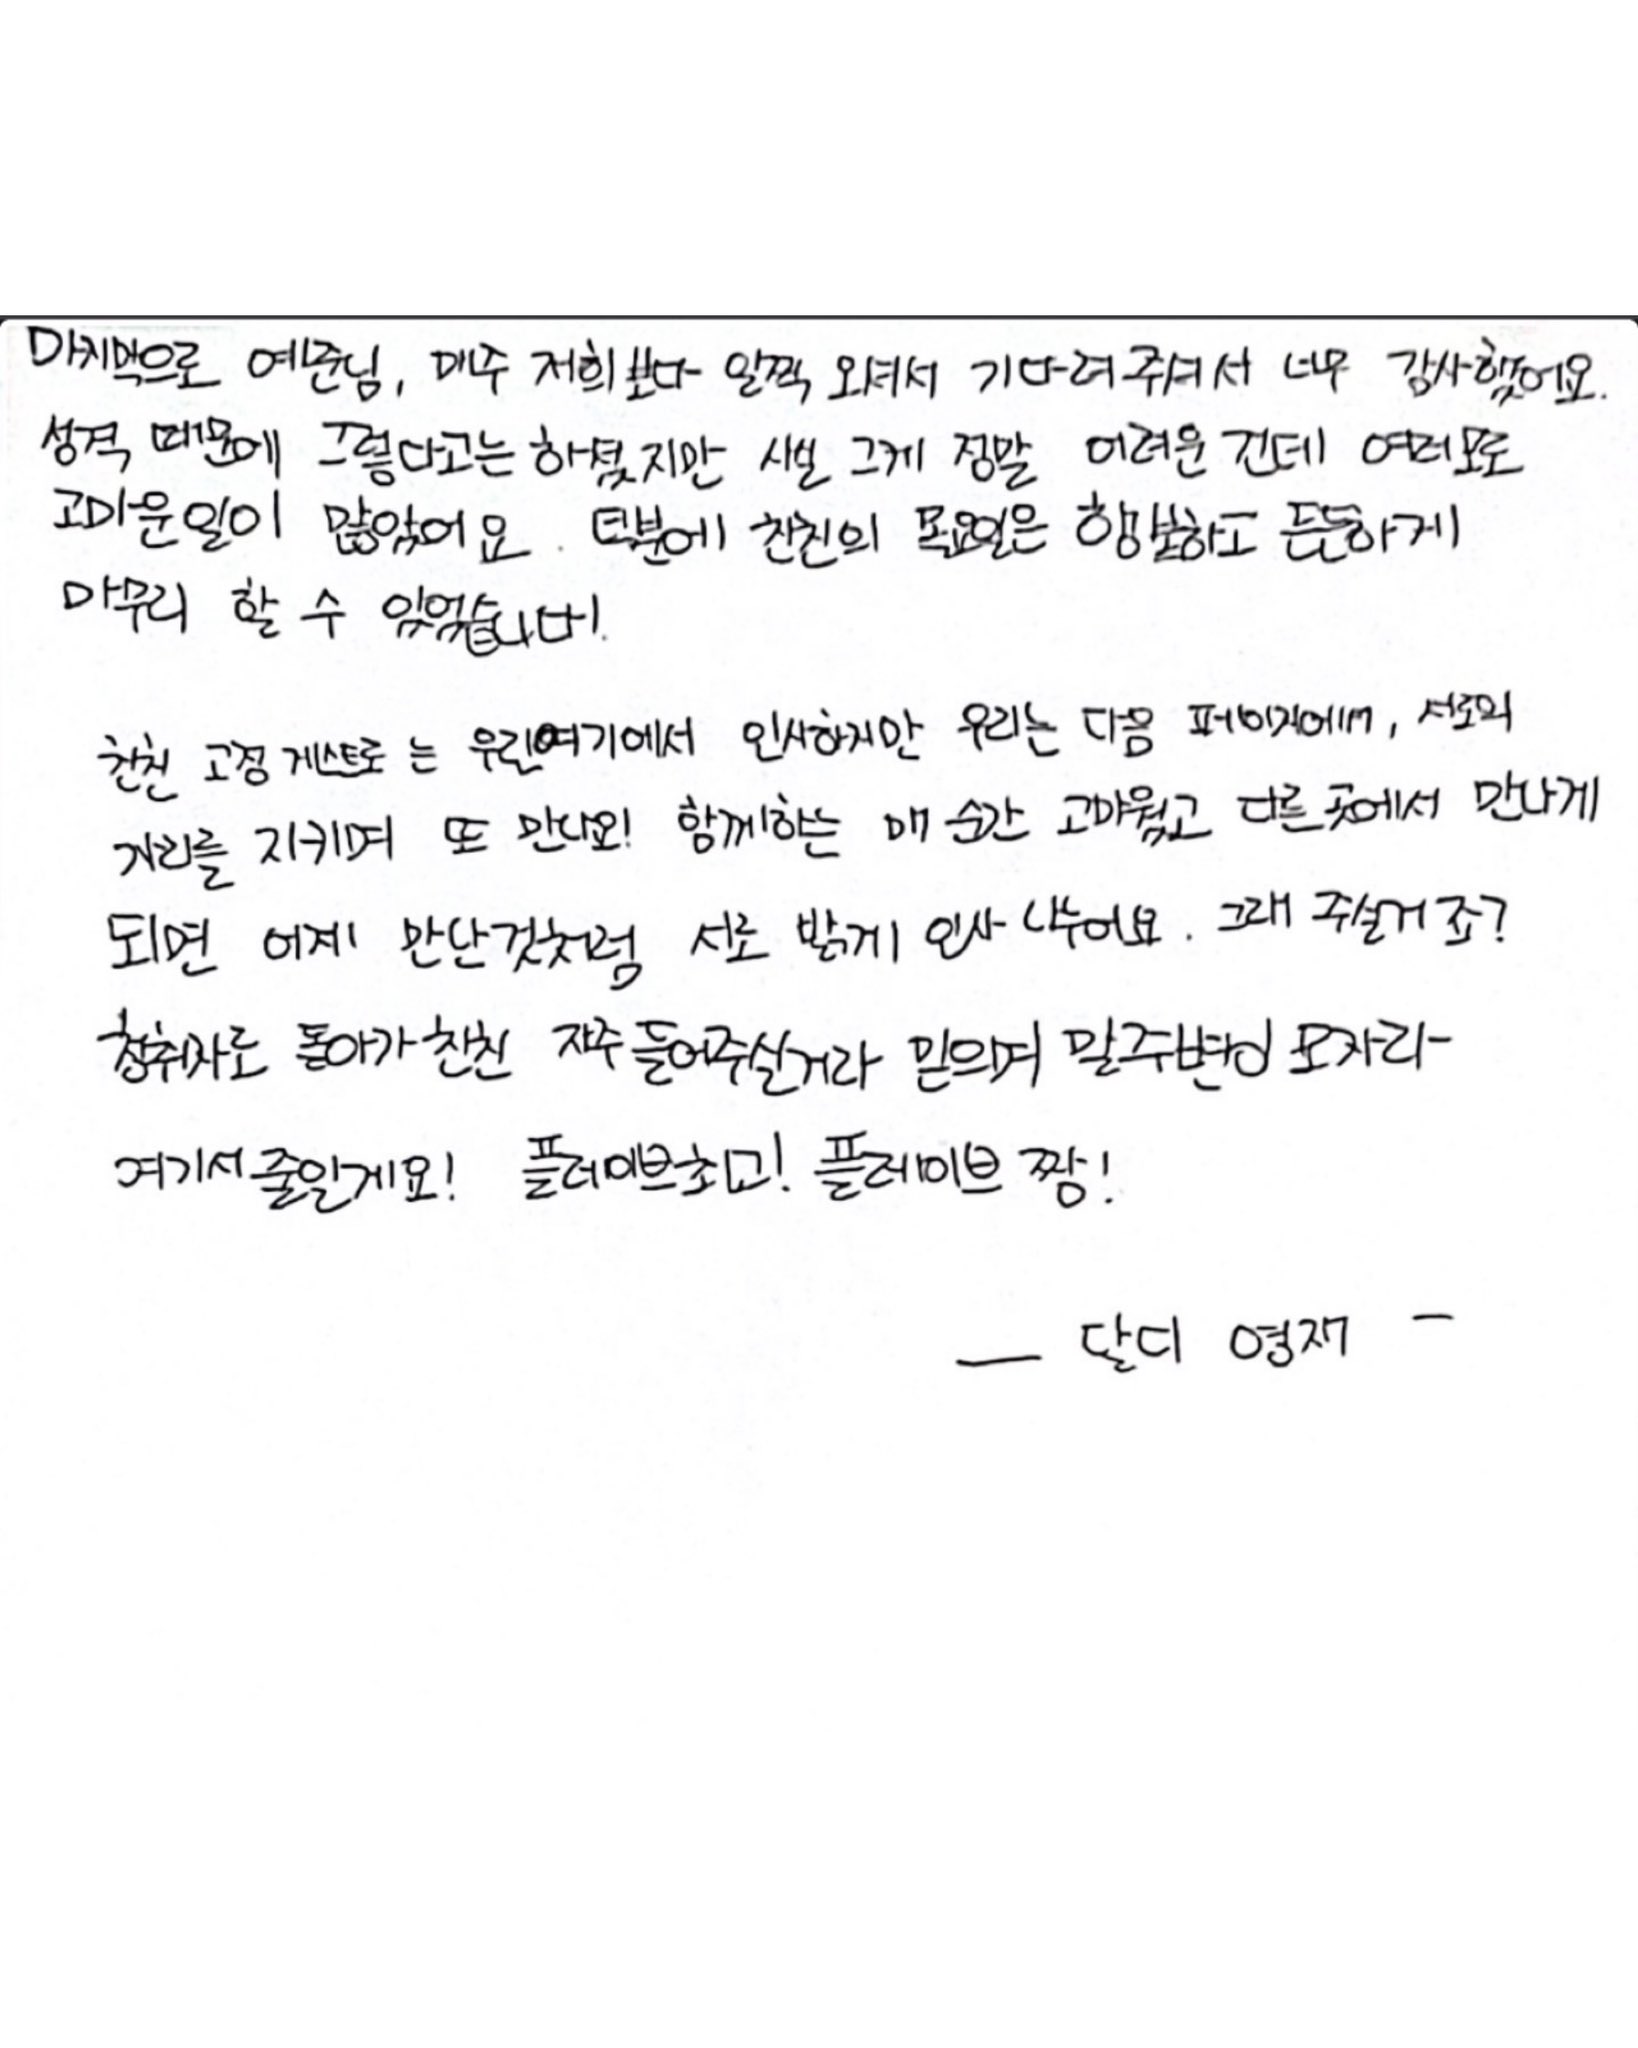 마지막으로 예준님, 매주 저희보다 일찍 오셔서 기다려주셔서 너무 감사했어요.
성격 때문에 그렇다고는 하셨지만 사실 그게 정말 어려운 건데 여러모로
고마운일이 많았어요. 덕분에 친친의 목요일은 행복하고 든든하게
마무리 할 수 있었습니다!
친친 고정 게스트로는 우린여기에서 인사하지만 우리는 다음 페이지에서, 서로의
자리를 지키며 또 만나요! 함께하는 매 순간 고마웠고 다른 곳에서 만나게
되면 어제 만난것처럼 서로 밝게 인사 나누어요. 그래 주실거죠?
청취자로 돌아가 친친 자주 들어주실거라 믿으며 말주변이 모자라
여기서 줄일게요! 플레이브최고! 플레이브 짱!
— 달디 영재 -